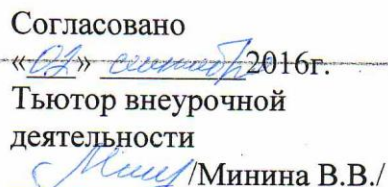 Согласовано
«02» сентября 2016г.
Тьютор внеурочной
деятельности
/Минина В.В./